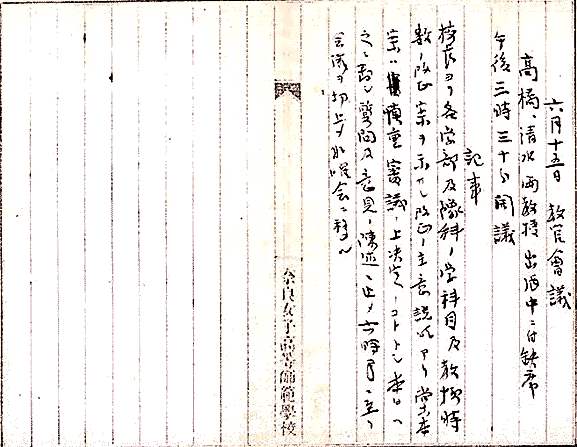 六月十五日 教官會議
高橋、清水両教授 出張中ニ付欠席
午後三時三十分開議
記事
校長ヨリ各学部及豫科ノ学科目及教授時
数ノ改正案ヲ示サレ改正ノ主意説明アリ尚本
案ハ慎重審議ノ上決定スルコトトシ本日ハ
之ニ対シ質問及意見ノ陳述ニ止メ六時
会議ヲ切上ゲ晩餐会ニ移ル
奈良女子高等師範學校